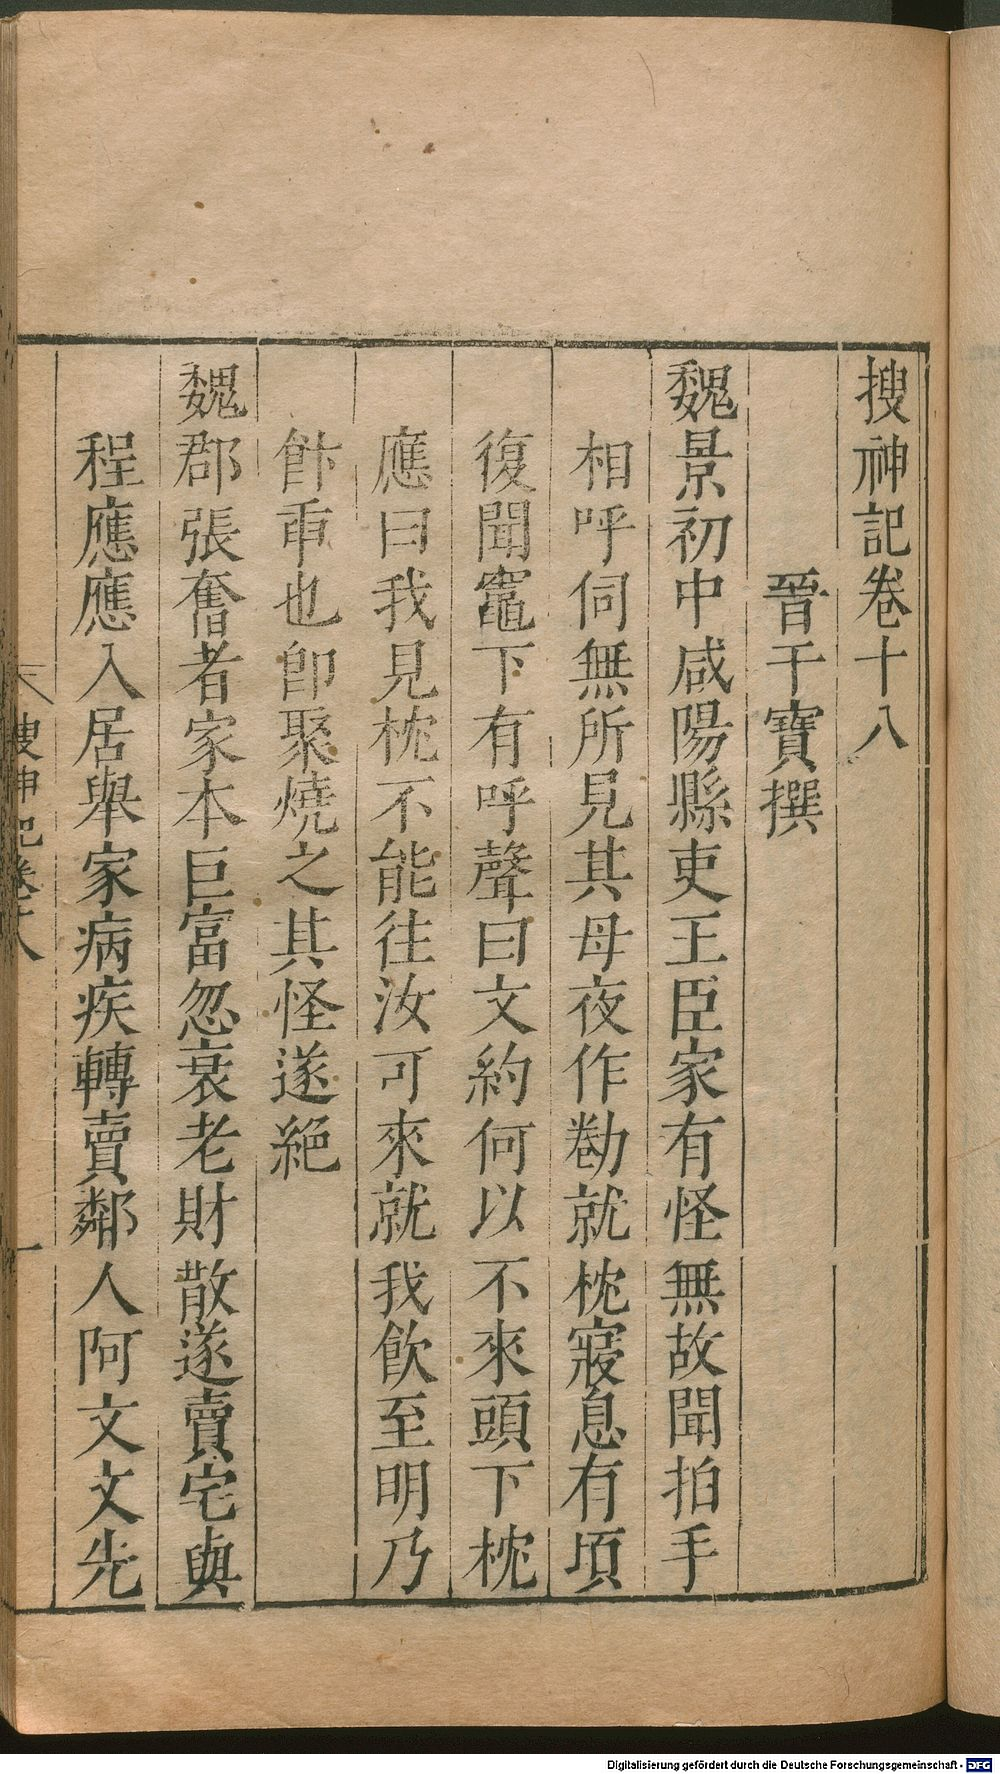 搜神記卷十八
晉干寶撰
魏景初中咸陽縣吏王臣家有怪無故聞拍手
相呼伺無所見其母夜作勌就枕寢息有頃
復聞竈下有呼聲曰文約何以不來頭下枕
應曰我見枕不能往汝可來就我飲至明乃
飰臿也卽聚燒之其怪遂絕
魏郡張奮者家本巨富忽衰老財散遂賣宅與
程應應入居舉家病疾轉賣鄰人阿文文先
搜神記卷十八
一
Digitalisierung gefördert durch die Deutsche Forschungsgemeinschaft - DFG